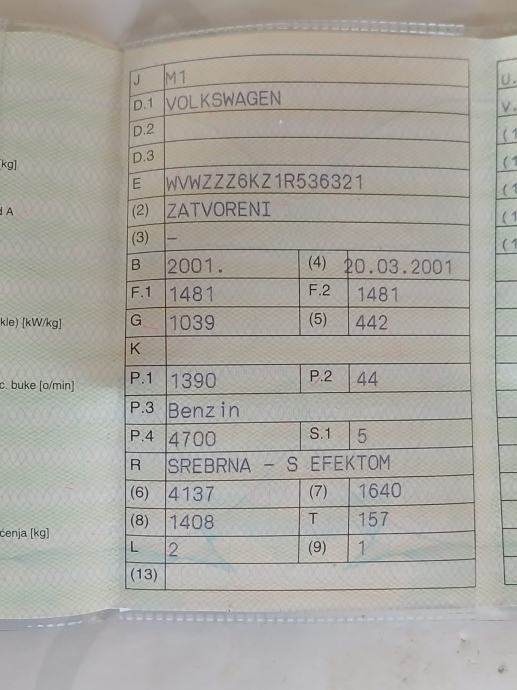 J M1
D.1 VOLKSWAGEN
D.2
D.3
kg]
E WVWZZZ6KZ1R536321
d A
(2) ZATVORENI
(3) –
B 2001. (4) 20.03.2001
F.1 1481 F.2 1481
kle) [kW/kg]
G 1039 (5) 442
K
P.1 1390 P.2 44
c. buke [o/min]
P.3 Benzin
P.4 4700 S.1 5
R SREBRNA - S EFEKTOM
(6) 4137 (7) 1640
(8) 1408 T 157
ćenja [kg]
L 2 (9) 1
(13)
U.
V.
(1
(1
(1
(1
(1